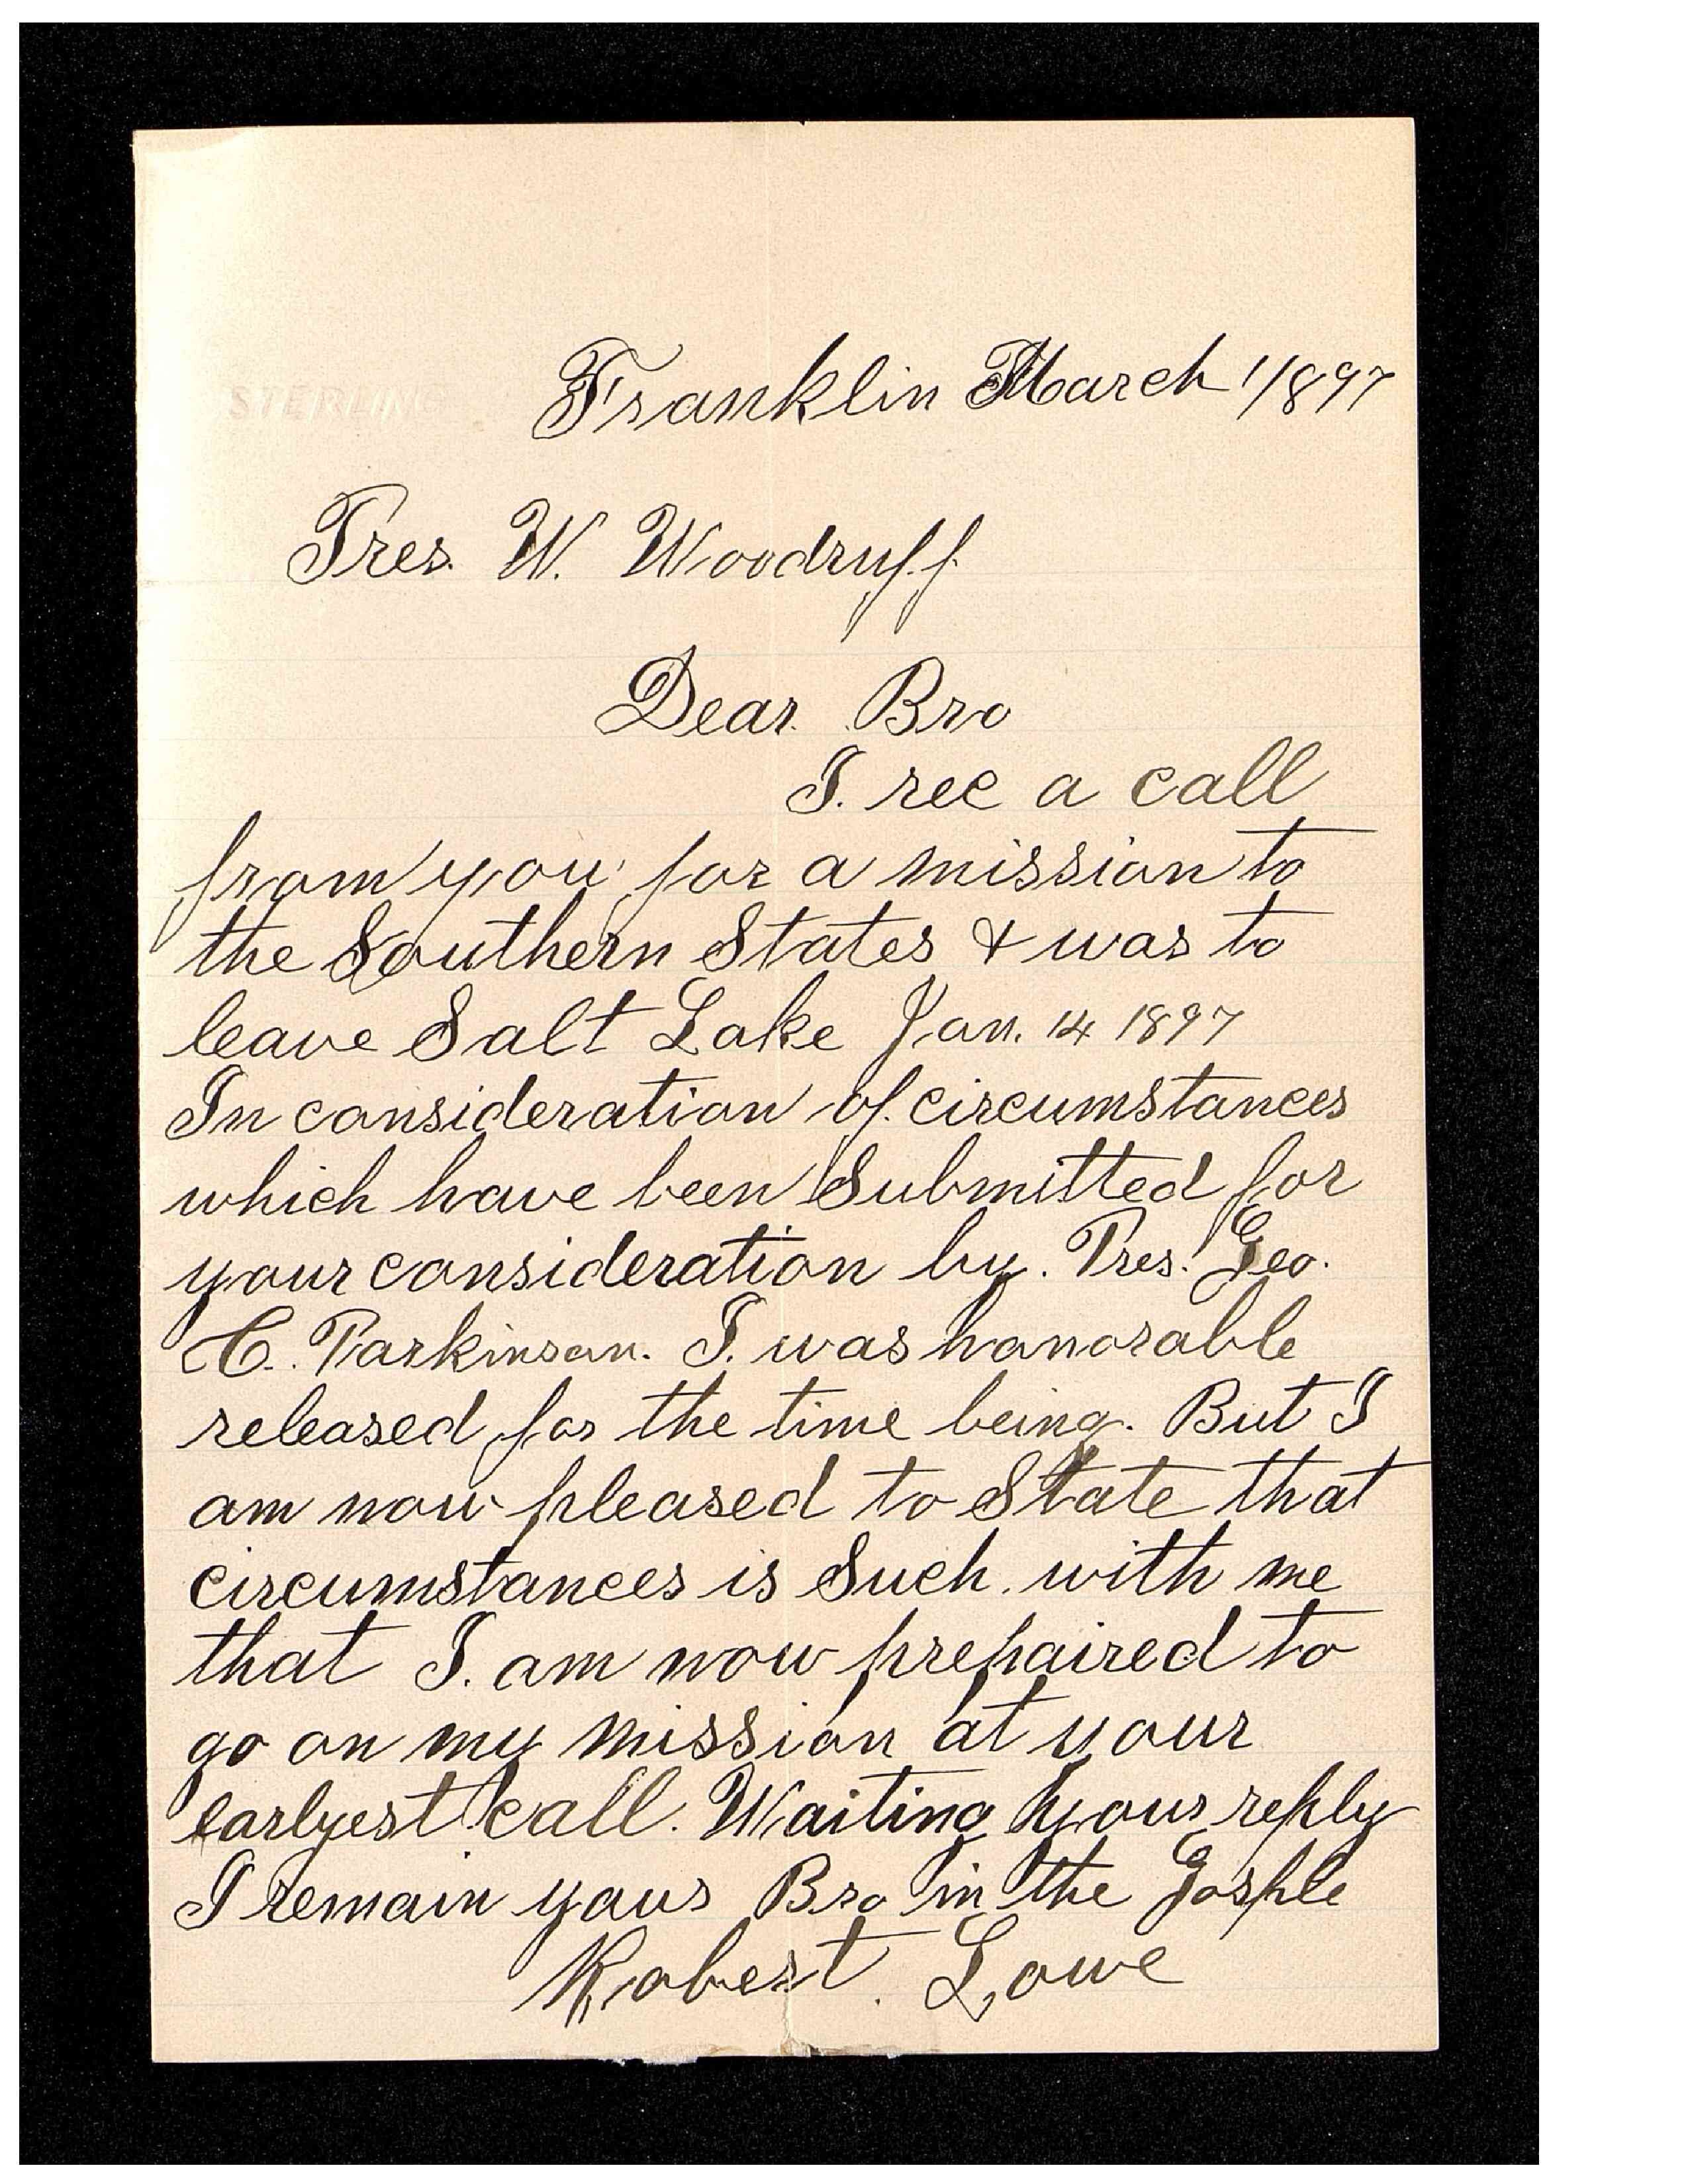 STERLING
Franklin March 1/897
Pres. W. Woodruff
Dear Bro
I. rec a call
from you for a mission to
the Southern States & was to
leave Salt Lake Jan. 14 1897
In consideration of circumstances
which have been Submitted for
your consideration by. Pres. Geo.
C. Parkinson. I. was honorable
released for the time being. But I
am now pleased to State that
circumstances is Such with me
that I. am now prepaired to
go on my mission at your
earlyest call. Waiting your reply
I remain yours Bro in the Gosple
Robert. Lowe